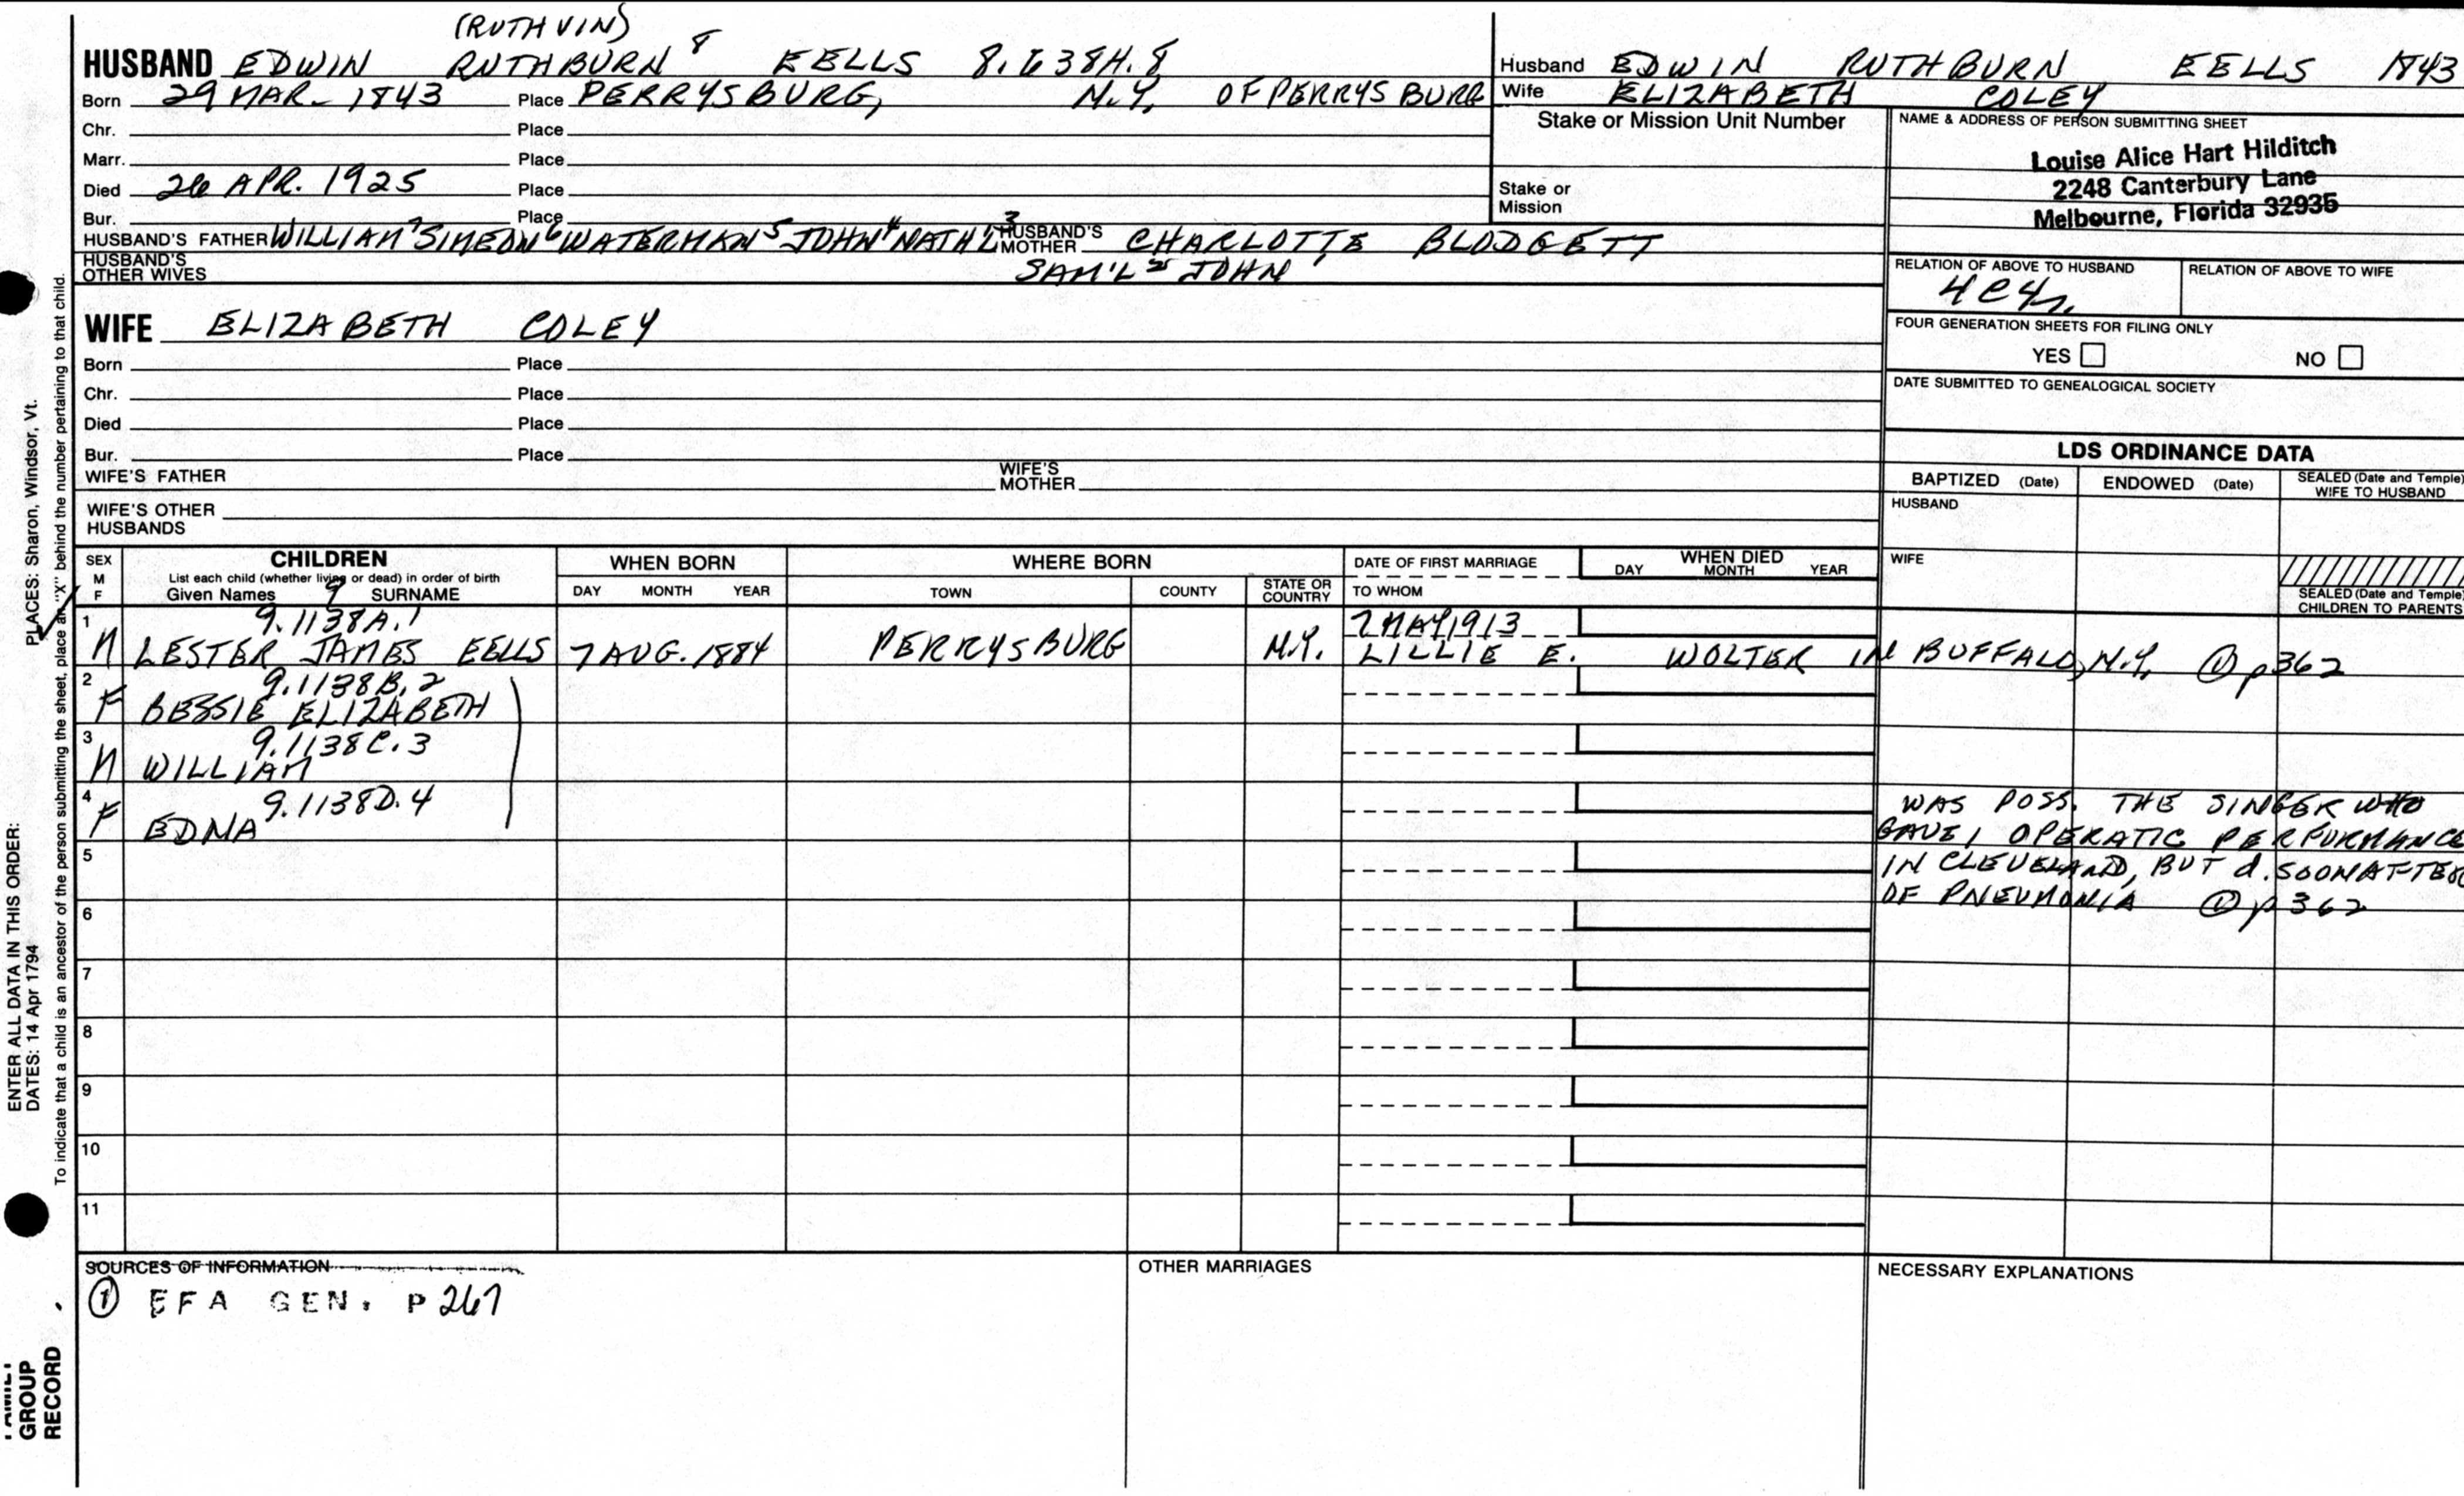 (RUTHVIN)
HUSBAND EDWIN RUTHBURN 8 EELLS 8.638H.8
Born 29 MAR. 1843 Place PERRYSBURG, N.Y. OF PERRYSBURG
Chr. Place
Marr. Place
Died 26 APR. 1925 Place
Bur. Place
HUSBAND'S FATHER WILLIAM 7 SIMEON 6 WATERMAN 5 JOHN 4 NATH'L 3 HUSBAND'S MOTHER CHARLOTTE BLODGETT
HUSBAND'S OTHER WIVES SAM'L 2 JOHN 1
WIFE ELIZABETH COLEY
Born Place
Chr. Place
Died Place
Bur. Place
WIFE'S FATHER WIFE'S MOTHER
WIFE'S OTHER HUSBANDS
Husband EDWIN RUTHBURN EELLS 1843
Wife ELIZABETH COLEY
Stake or Mission Unit Number
Stake or Mission
NAME & ADDRESS OF PERSON SUBMITTING SHEET
Louise Alice Hart Hilditch
2248 Canterbury Lane
Melbourne, Florida 32935
RELATION OF ABOVE TO HUSBAND RELATION OF ABOVE TO WIFE
FOUR GENERATION SHEETS FOR FILING ONLY
YES NO
DATE SUBMITTED TO GENEALOGICAL SOCIETY
LDS ORDINANCE DATA
BAPTIZED (Date) ENDOWED (Date) SEALED (Date and Temple) WIFE TO HUSBAND
HUSBAND
WIFE
SEALED (Date and Temple) CHILDREN TO PARENTS
SEX M F
CHILDREN
List each child (whether living or dead) in order of birth
Given Names 9 SURNAME
WHEN BORN
DAY MONTH YEAR
WHERE BORN
TOWN COUNTY STATE OR COUNTRY
DATE OF FIRST MARRIAGE
TO WHOM
WHEN DIED
DAY MONTH YEAR
1 9.1138A.1 7 MAY 1913
M LESTER JAMES EELLS 7 AUG. 1884 PERRYSBURG N.Y. LILLIE E. WOLTER IN BUFFALO, N.Y. ① p362
2 9.1138B.2
F BESSIE ELIZABETH
3 9.1138C.3
M WILLIAM
4 9.1138D.4
F EDNA
WAS POSS. THE SINGER WHO
GAVE 1 OPERATIC PERFORMANCE
IN CLEVELAND, BUT d. SOON AFTER
OF PNEUMONIA ① p362
5
6
7
8
9
10
11
SOURCES OF INFORMATION
① EFA GEN. P267
OTHER MARRIAGES
NECESSARY EXPLANATIONS
ENTER ALL DATA IN THIS ORDER:
DATES: 14 Apr 1794 PLACES: Sharon, Windsor, Vt.
To indicate that a child is an ancestor of the person submitting the sheet, place an "X" behind the number pertaining to that child.
FAMILY
GROUP
RECORD